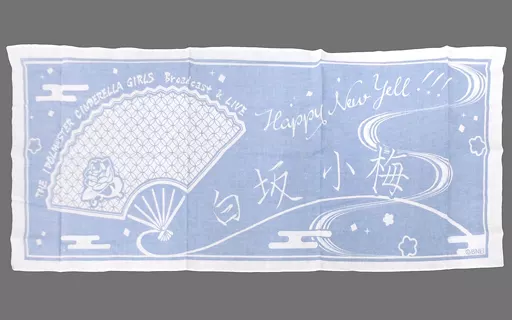 THE IDOLM@STER CINDERELLA GIRLS Broadcast & LIVE
Happy New Yell !!!
白坂小梅
©BNEI